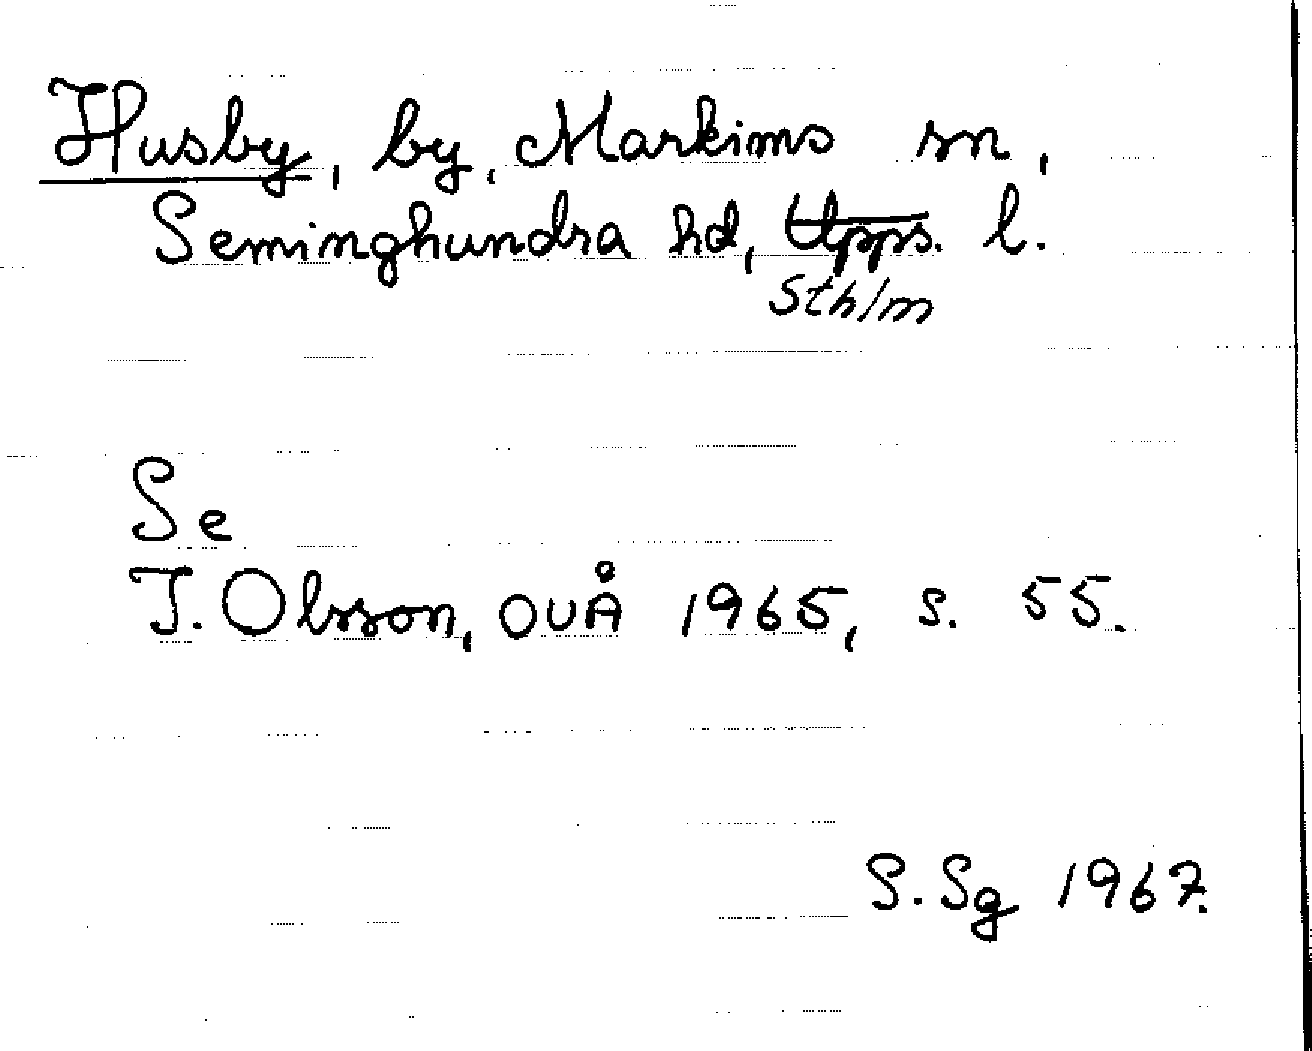 Husby, by, Markims sn,
Seminghundra hd, Upps. l.
Sthlm
Se
I. Olsson, OUÅ 1965, s. 55.
S. Sg 1967.